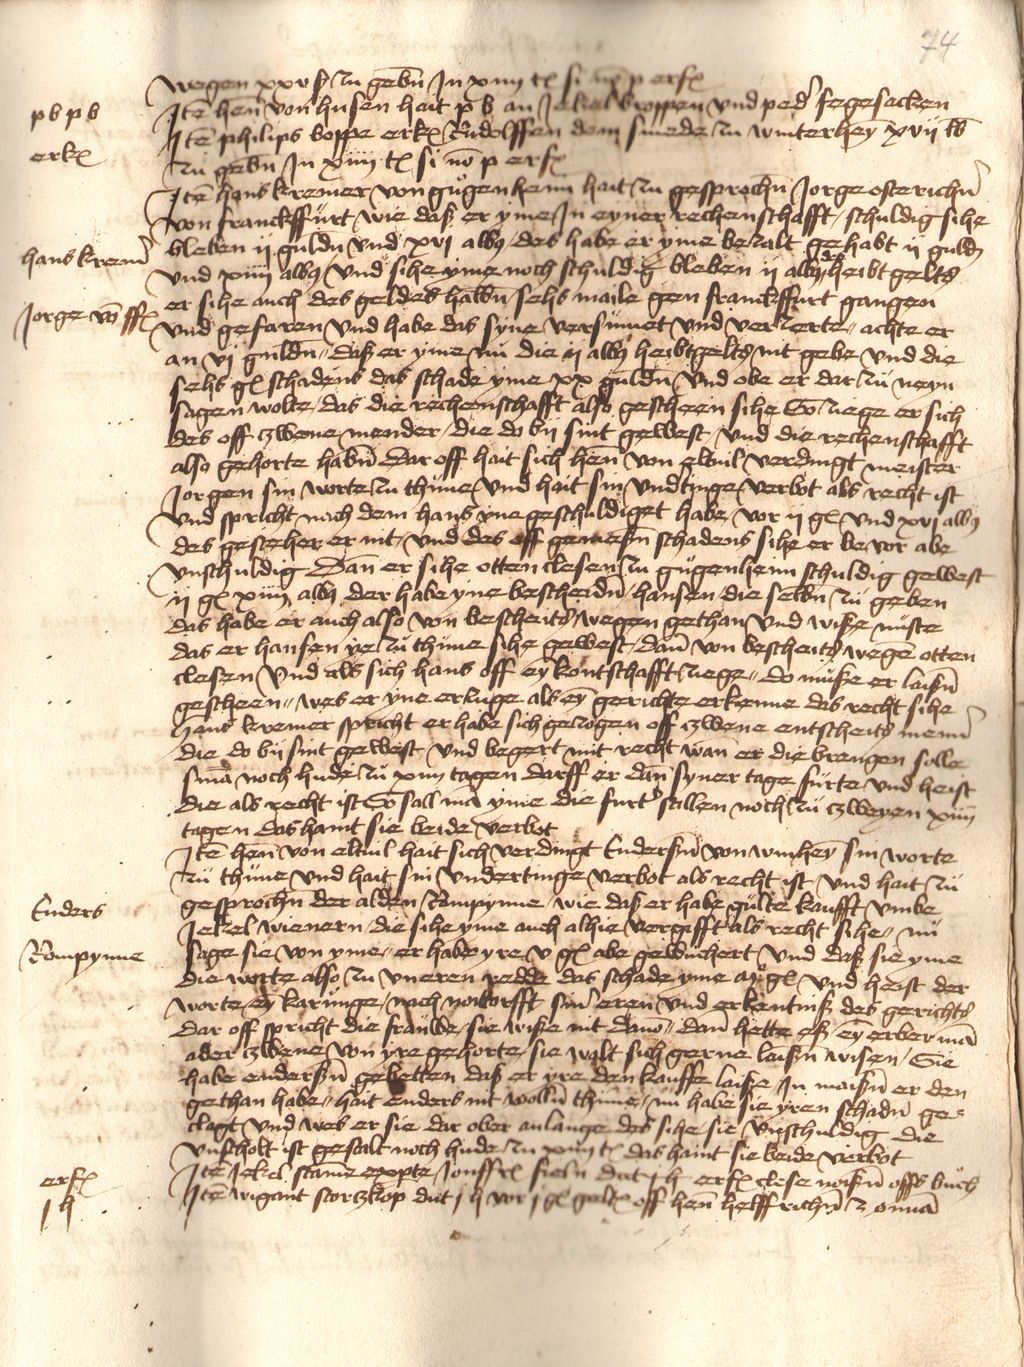 74
wegen xxv ß zu geben in xiiij t si no p erf
p b p b
Ite hen von husen hait p b an Jekel boppen und ped fegesacken
erk
Ite philips boppe erk Rudolffen dem smede zu winterhey xvij lb
zu geben in xiiij t si no p erf
Ite hans kremer von gugenheim hait zu gesprochn Jorge osterichn
von franckffurt wie daß er yme in eyner rechenschafft schuldig sihe
hans kremer
bleben ij guldn und xvj alb des habe er yme bezalt gehabt ij guldn
und xiiij alb und sihe yme noch schuldig bleben ij alb heibtgelts
Jorge von ff
er sihe auch des geldes halbn sehs maile gen franckffurt gangen
und gefaren und habe das syne versumet und verzerte achte er
an vj guldn daß er yme nu die ij alb heibtgelts nit gebe und die
sehs gl schadens das schade yme xx guldn und obe er dar zu neyn
sagen wolte das die rechenschafft also gescheen sihe So ziege er sich
des off zwene mender die do bij sint gewest und die rechenschafft
also gehorte habn Dar off hait sich hen von eltuil verdingt meister
Jorgen sin worte zu thune und hait sin undtinge verbot als recht ist
und spricht nach dem hans yne geschuldiget habe vor ij gl und xvj alb
des gestehe er nit und des off gemeßn schadens sihe er bevor abe
unschuldig Dan er sihe otten clesen zu gugenheim schuldig gewest
ij gl xiiij alb der habe yne bescheidn hansen die selbn zu geben
das habe er auch also von bescheits wegen gethan und wiße nuste
das er hansen ye zu thune sihe gewest dan von bescheits wegen otten
clesen Und als sich hans off ey kontschafft ziege do muße er laißn
gescheen wes er yne erzuge als ey gerichte erkenne das recht sihe
hans kremer spricht er habe sich gezogen off zwene entscheits menn
die do bij sint gewest und begert mit recht wan er die brengen solle
sma noch hude zu xiiij tagen darff er dan syner tage furte und heist
die als recht ist So sall ma yme die furt stillen noch zu zweyen xiiij
tagen das haint sie beide verbot
Ite hen von eltuil hait sich verdingt Endersn von winhey sin worte
zu thune und hait sin undertinge verbot als recht ist und hait zu
Enders
gesprochn der alden Rompynne wie daß er habe gulte kaufft umbe
Jekel wienern die sihe yme auch alhie vergifft als recht sihe nu
Rompynne
sage sie von yme er habe yre v gl abe gewuchert und daß sie yme
die worte also zu uneren redde das schade yme gl und heist der
worte ey karunge nach noitorfft sin eren und erkentniß des gerichts
dar off spricht die frauwe sie wiße nit davon dan hette eß ey erber ma
ader zwene von yre gehorte sie wolt sich gerne laißn wisen Sie
habe endersn gebetten daß er yre den kauffe laiße In maißn er den
gethan habe hait enders nit wolln thune nu habe sie yren schadn ge-
clagt und wes er sie dar ober anlange des sihe sie unschuldig die
unscholt ist gestalt noch hude zu xiiij t das haint sie beide verbot
erf
Ite Jekel stame expte Jonffr fieln dut j h erf clese noißn offs buch
j h
Ite wigant stortzkop dut j h vor j gl gelts off hen helffrichn